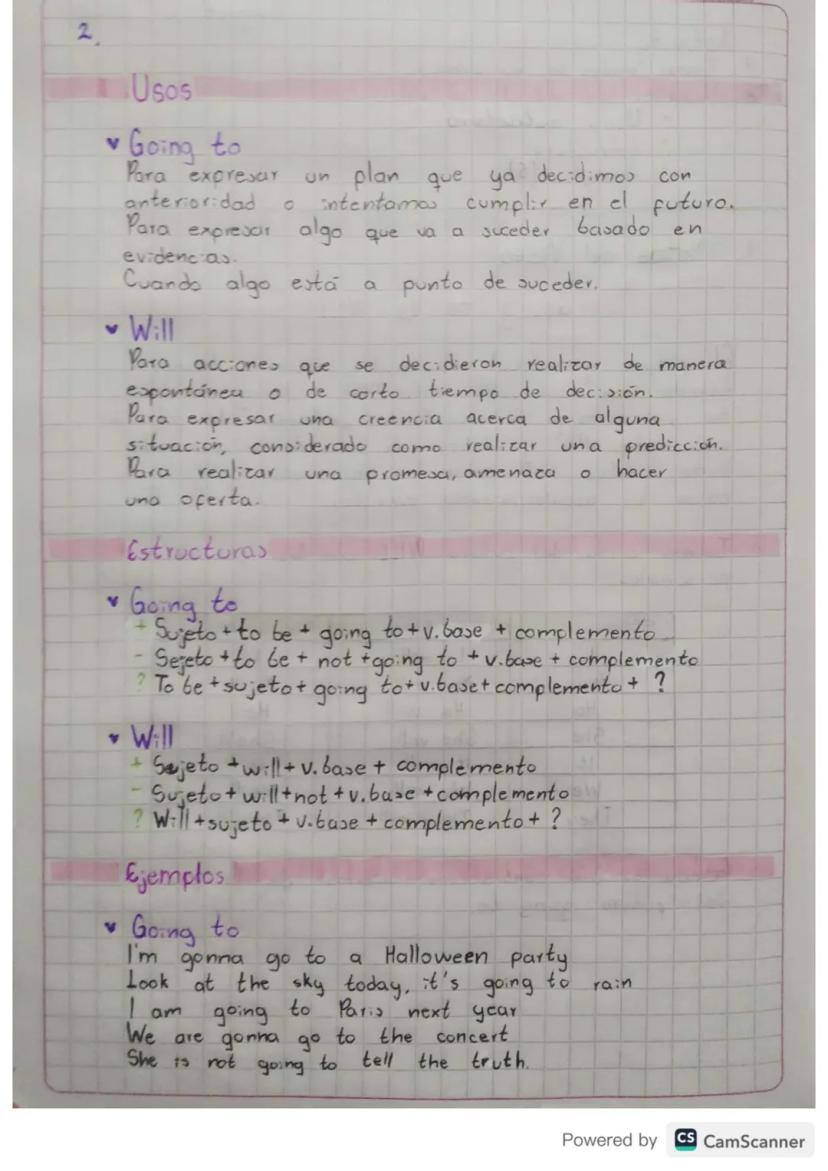 2.
Usos
Going to
Para expresar un plan que ya decidimos con
anterioridad o intentamos cumplir en el futuro.
Para expresar algo que va a suceder basado en
evidencias.
Cuando algo está a punto de suceder.
Will
Para acciones que se decidieron realizar de manera
espontánea o de corto tiempo de decisión.
Para expresar una creencia acerca de alguna
situación, considerado como realizar una predicción.
Para realizar una promesa, amenaza o hacer
una oferta.
Estructuras
Going to
+ Sujeto + to be + going to + v.base + complemento
- Sejeto + to be + not + going to + v.base + complemento
? To be + sujeto + going to + v.base + complemento + ?
Will
+ Sujeto + will + v. base + complemento
- Sujeto + will + not + v.base + complemento
? Will + sujeto + v.base + complemento + ?
Ejemplos
Going to
I'm gonna go to a Halloween party
Look at the sky today, it's going to rain
I am going to Paris next year
We are gonna go to the concert
She is not going to tell the truth.
Powered by CS CamScanner